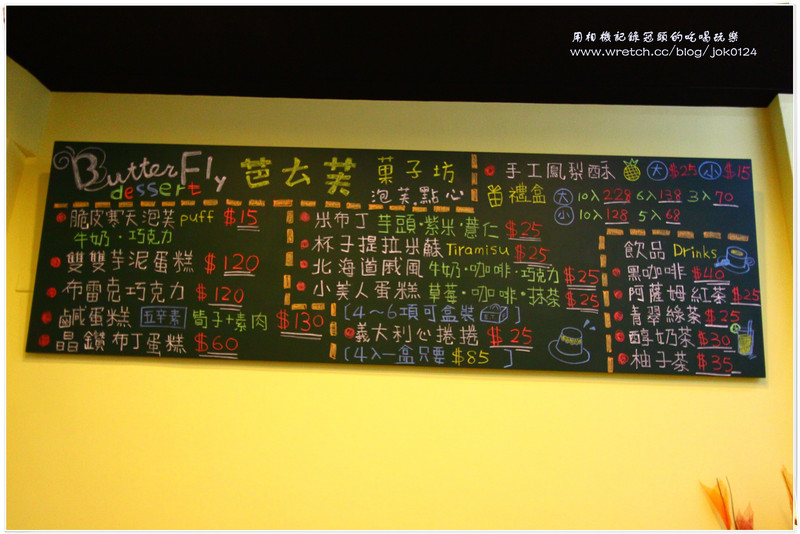 用相機記錄冠頤的吃喝玩樂
www.wretch.cc/blog/jok0124
ButterFly
dessert
芭ㄊ芙
菓子坊
泡芙.點心
脆皮寒天泡芙 puff $15
牛奶·巧克力
雙雙芋泥蛋糕 $120
布雷克巧克力 $120
鹹蛋糕 五辛素 筍子+素肉 $130
晶鑽布丁蛋糕 $60
米布丁 芋頭·紫米·薏仁 $25
杯子提拉米蘇 Tiramisu $25
北海道戚風 牛奶·咖啡·巧克力 $25
小美人蛋糕 草莓·咖啡·抹茶 $25
[4~6項可盒裝 ]
義大利心捲捲 $25
[4入一盒只要 $85 ]
手工鳳梨酥 大 $25 小 $15
禮盒 大 10入 228 6入 138 3入 70
小 10入 128 5入 68
飲品 Drinks
黑咖啡 $40
阿薩姆紅茶 $25
青翠綠茶 $25
醇奶茶 $30
柚子茶 $35